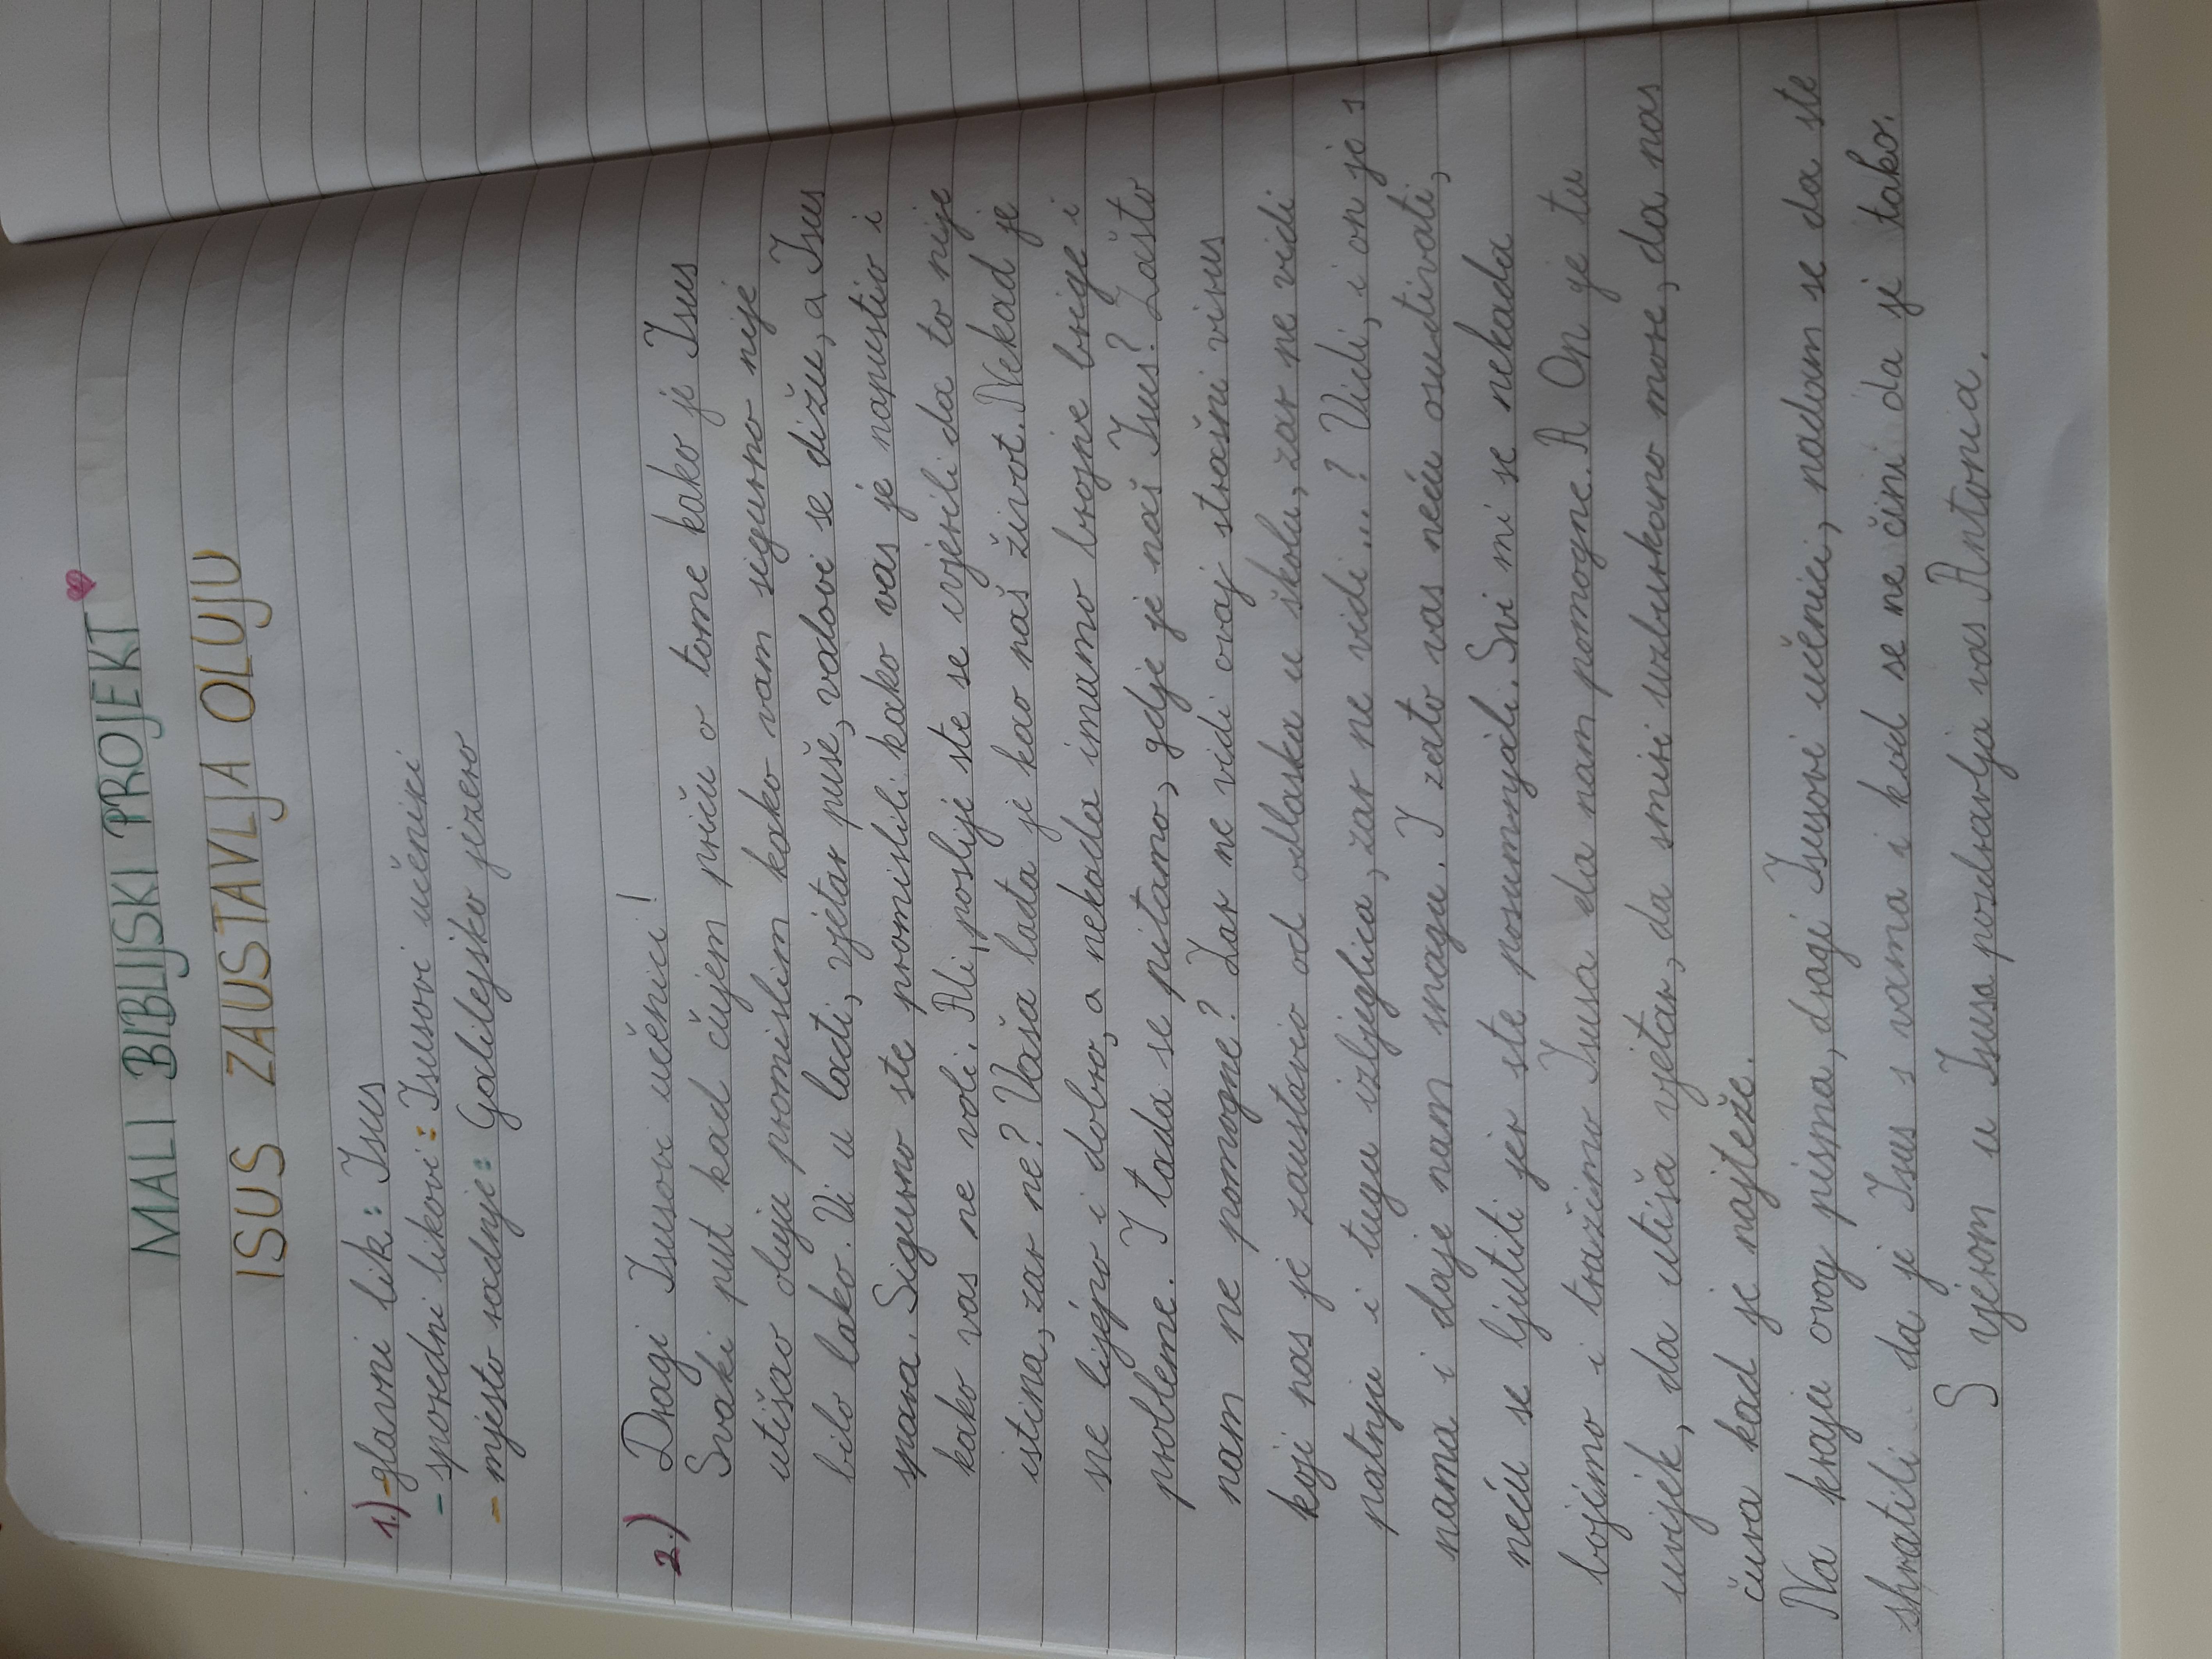 MALI BIBLIJSKI PROJEKT
ISUS ZAUSTAVLJA OLUJU
1.) - glavni lik: Isus
- sporedni likovi: Isusovi učenici
- mjesto radnje: Galilejsko jezero
2.) Dragi Isusovi učenici!
Svaki put kad čujem priču o tome kako je Isus
utišao oluju pomislim kako vam sigurno nije
bilo lako. Vi u lađi, vjetar puše, valovi se dižu, a Isus
spava. Sigurno ste promislili kako vas je napustio i
kako vas ne voli. Ali, poslije ste se uvjerili da to nije
istina, zar ne? Vaša lađa je kao naš život. Nekad je
sve lijepo i dobro, a nekada imamo brojne brige i
probleme. I tada se pitamo, gdje je naš Isus? Zašto
nam ne pomogne? Zar ne vidi ovaj strašni virus
koji nas je zaustavio od odlaska u školu, zar ne vidi
patnju i tugu izbjeglica, zar ne vidi...? Vidi, i on je s
nama i daje nam snagu. I zato vas neću osuđivati,
neću se ljutiti jer ste posumnjali. Svi mi se nekada
bojimo i tražimo Isusa da nam pomogne. A On je tu
uvijek, da utiša vjetar, da smiri uzburkano more, da nas
čuva kad je najteže.
Na kraju ovog pisma, dragi Isusovi učenici, nadam se da ste
shvatili da je Isus s vama i kad se ne čini da je tako.
S vjerom u Isusa pozdravlja vas Antonia.